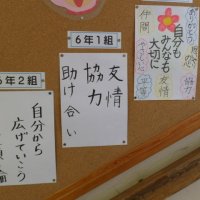 ありがとう
自分も
みんなも
大切に
仲間
友情
協力
6年1組
友情
協力
助け合い
6年2組
自分から
広げていこう